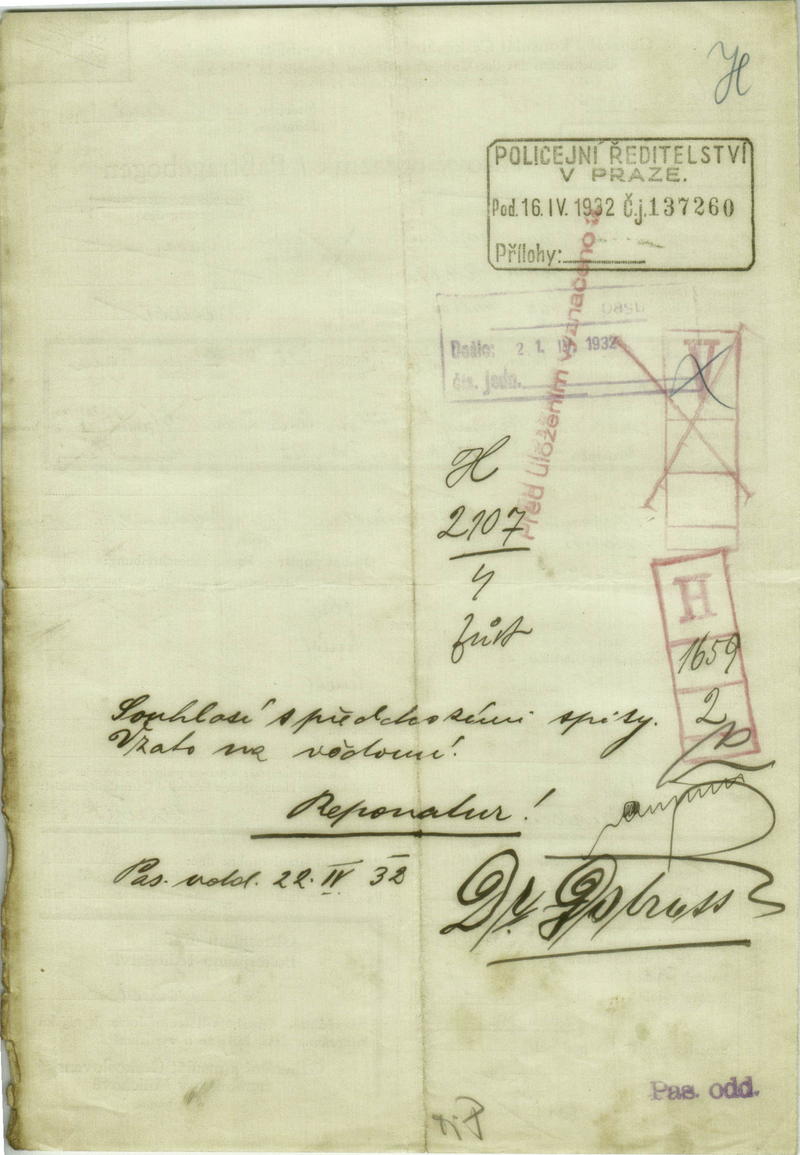 H
POLICEJNÍ ŘEDITELSTVÍ
V PRAZE.
Pod. 16. IV. 1932 Č.j. 137260
Přílohy:
pasů
Došlo: 21. IV. 1932
čís. jedn.
Před uložením vyznačeno v
V
H
2107
4
H
1659
2
Souhlasí s předchozími spisy.
Vzato na vědomí.
Reponatur!
Pas. odd. 22. IV 32
Dr.
Pas. odd.